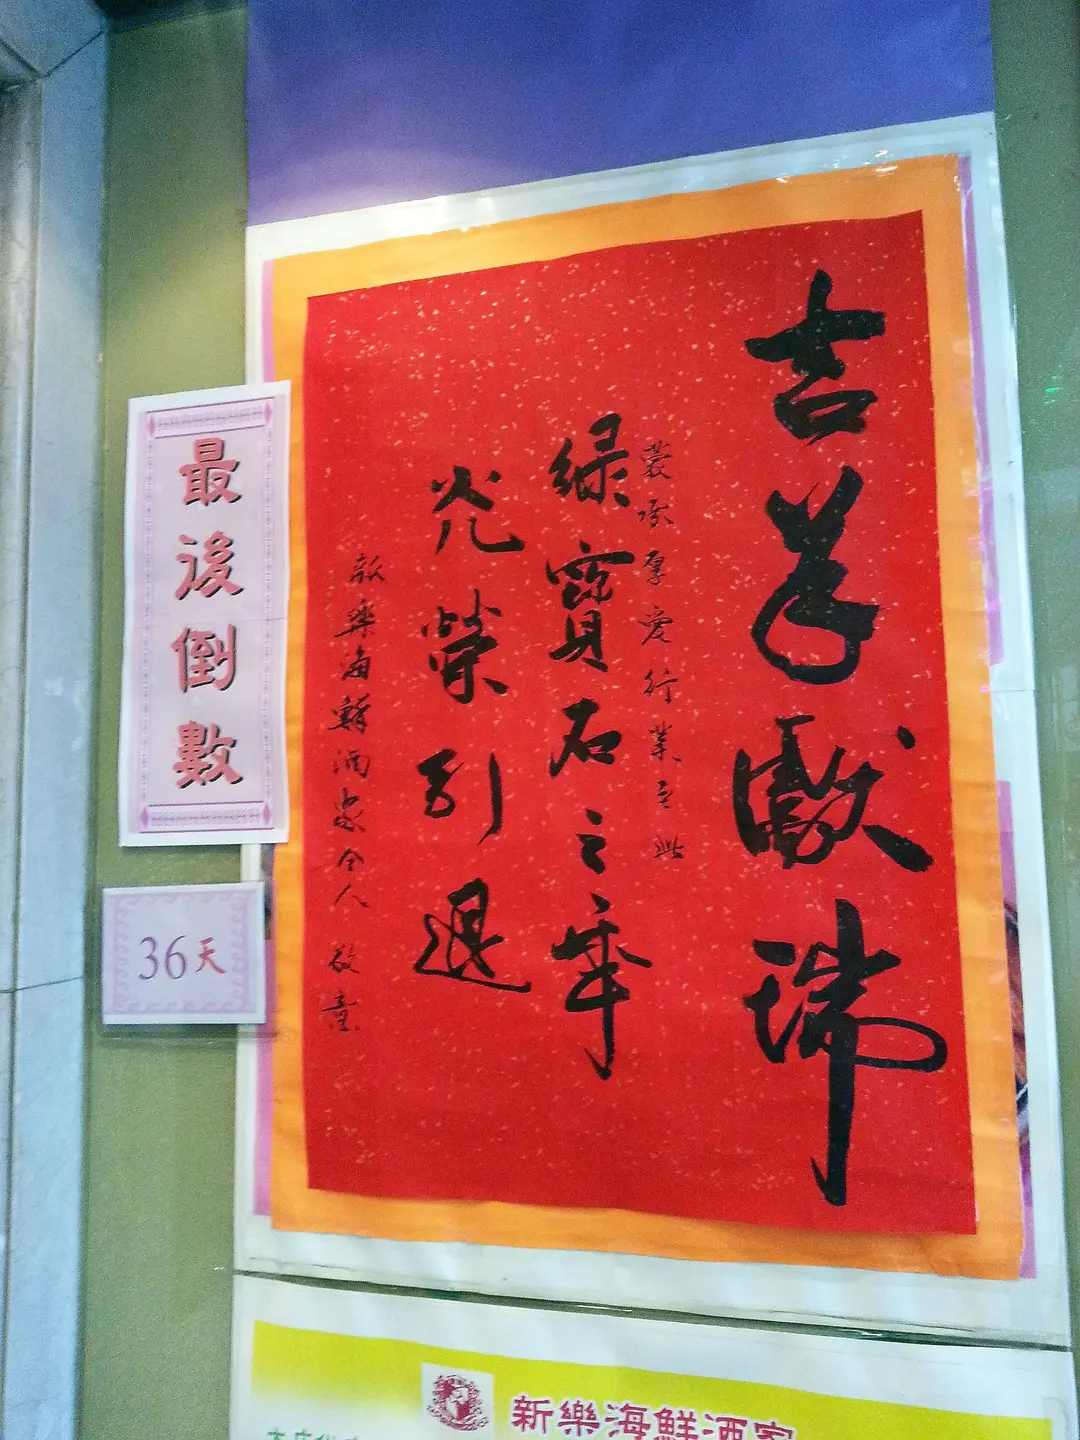 吉羊獻瑞
蒙承厚愛行業至此
綠寶石之年
光榮引退
新樂海鮮酒家仝人 敬啟
最後倒數
36天
新樂海鮮酒家